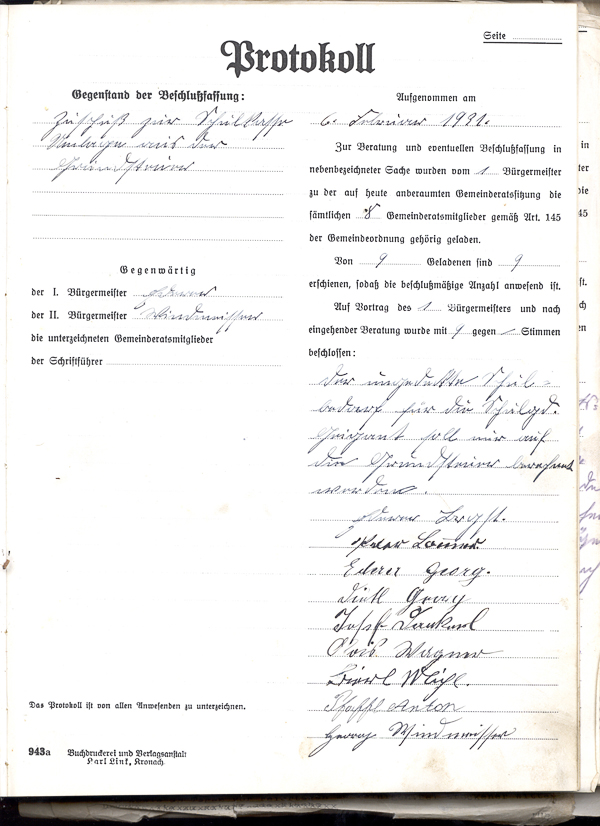 Seite
Protokoll
Gegenstand der Beschlußfassung:
Zuschuß zur Schulkasse
Umlage aus der
Grundsteuer
Gegenwärtig
der I. Bürgermeister
der II. Bürgermeister Windmeisser
die unterzeichneten Gemeinderatsmitglieder
der Schriftführer
Das Protokoll ist von allen Anwesenden zu unterzeichnen.
943a Buchdruckerei und Verlagsanstalt
Karl Link, Kronach
Aufgenommen am
6. Februar 1931.
Zur Beratung und eventuellen Beschlußfassung in
nebenbezeichneter Sache wurden vom 1 Bürgermeister
zu der auf heute anberaumten Gemeinderatssitzung die
sämtlichen 8 Gemeinderatsmitglieder gemäß Art. 145
der Gemeindeordnung gehörig geladen.
Von 9 Geladenen sind 9
erschienen, sodaß die beschlußmäßige Anzahl anwesend ist.
Auf Vortrag des 1 Bürgermeisters und nach
eingehender Beratung wurde mit 9 gegen – Stimmen
beschlossen:
Der ungedeckte Schul-
bedarf für die Schulgd.
Geigant soll nur auf
die Grundsteuer berechnet
werden.
Ederer Georg.
Dietl Georg
Josef
Alois Wagner
Anton
Georg Windmeisser